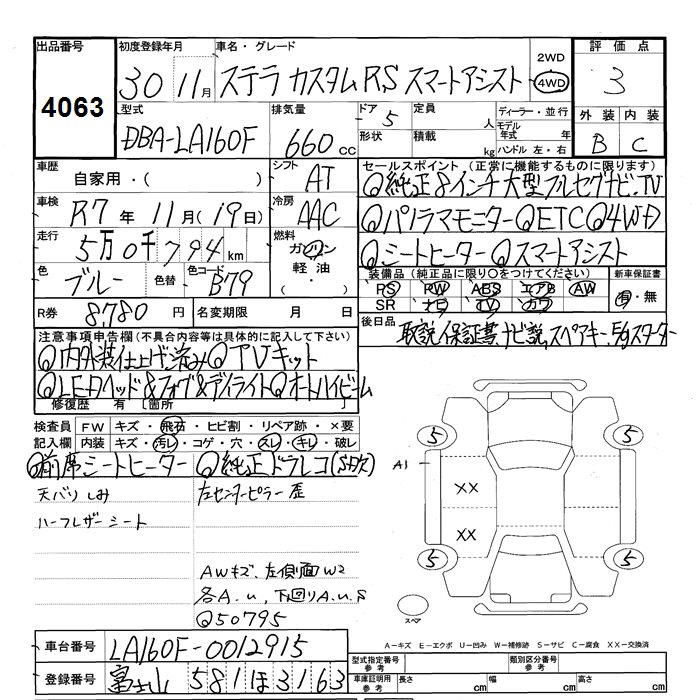 出品番号 初度登録年月 車名・グレード 2WD 評価点
4063 30 11月 ステラ カスタムRS スマートアシスト 4WD 3
型式 排気量 ドア 定員 ディーラー・並行 外装 内装
DBA-LA160F 660cc 5 人 モデル年式 年
形状 積載 kg ハンドル 左・右 B C
車歴 自家用・( ) シフト AT セールスポイント(正常に機能するものに限ります)
◎純正8インチ大型フルセグナビ.TV
車検 R7年11月(19日) 冷房 AAC ◎パノラマモニター◎ETC◎4WD
走行 5万0千794km 燃料 ガソリン 軽油・( ) ◎シートヒーター◎スマートアシスト
色 ブルー 色替 色コード B79 装備品(純正品に限り○をつけてください) 新車保証書
PS PW ABS エアB AW 有・無
SR ナビ TV カワ
R券 8,780円 名変期限 月 日 後日品 取説,保証書,ナビ説,スペアキー,E/gスターター
注意事項申告欄(不具合内容等は具体的に記入して下さい)
◎内外装仕上げ済み◎TVキット
◎LEDヘッド&フォグ&デイライト◎オートハイビーム
修復歴 有 [箇所
検査員 FW キズ・飛石・ヒビ割・リペア跡・×要
記入欄 内装 キズ・汚レ・コゲ・穴・スレ・キレ・破レ
◎前席シートヒーター ◎純正ドラレコ(SD欠)
天バリしみ 左センターピラー歪
ハーフレザーシート
AWキズ、左側面W2
各A.u,下回りA.u.S
◎50795
5 5
A1 XX
XX
5 5
スペア
A-キズ E-エクボ U-凹み W-補修跡 S-サビ C-腐食 XX-交換済
車台番号 LA160F-0012915
登録番号 富士山 581ほ3163
型式指定番号 参考 類別区分番号 参考
車庫証明用 参考 長さ cm 幅 cm 高さ cm